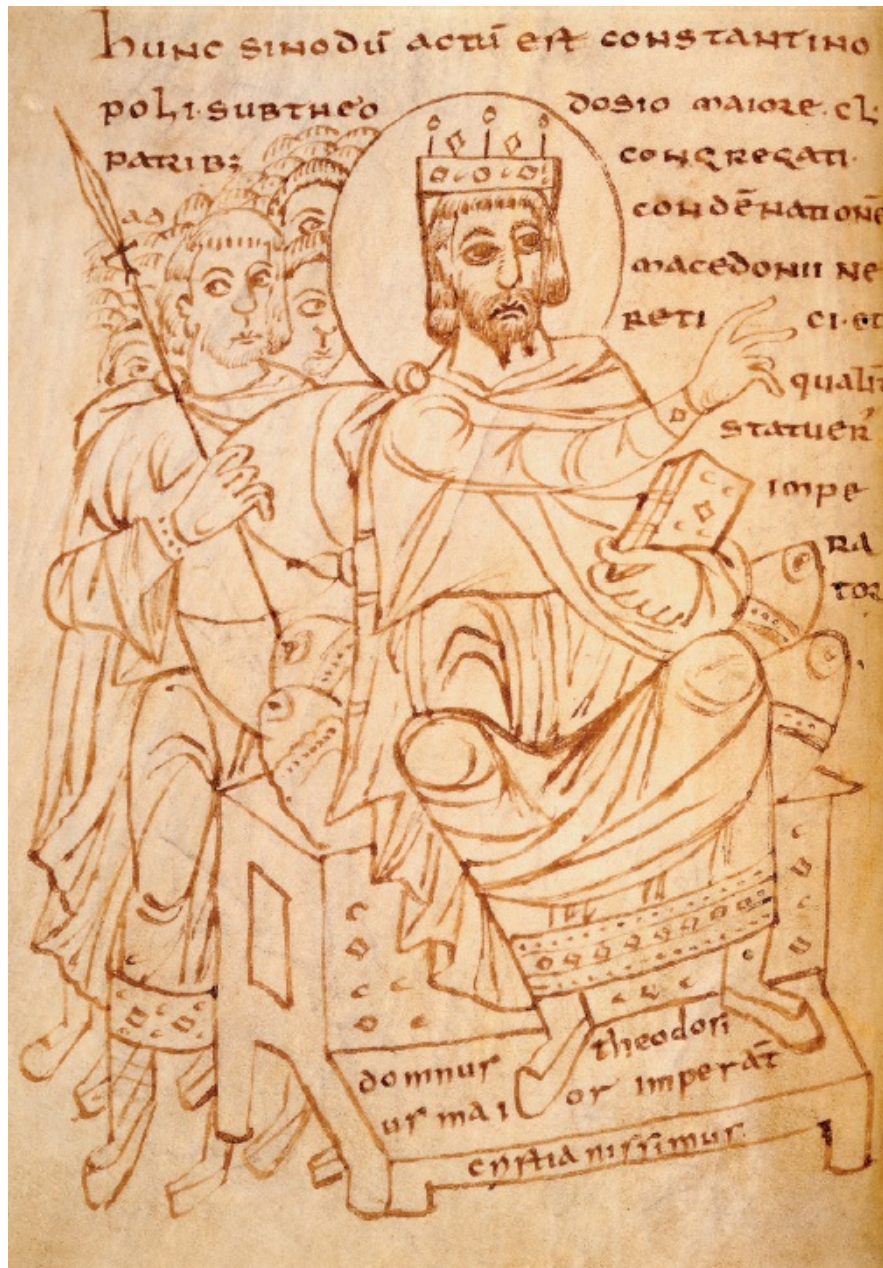 hunc sinodū actū est constantino
poli·subtheo dosio maiore·cl·
patrib; congregati·
condēnationē
macedonii he
reti ci·et
qualit̄
statuer̄
impe
ra
tor
domnus theodosi
us mai or imperat̄
cristianissimus·